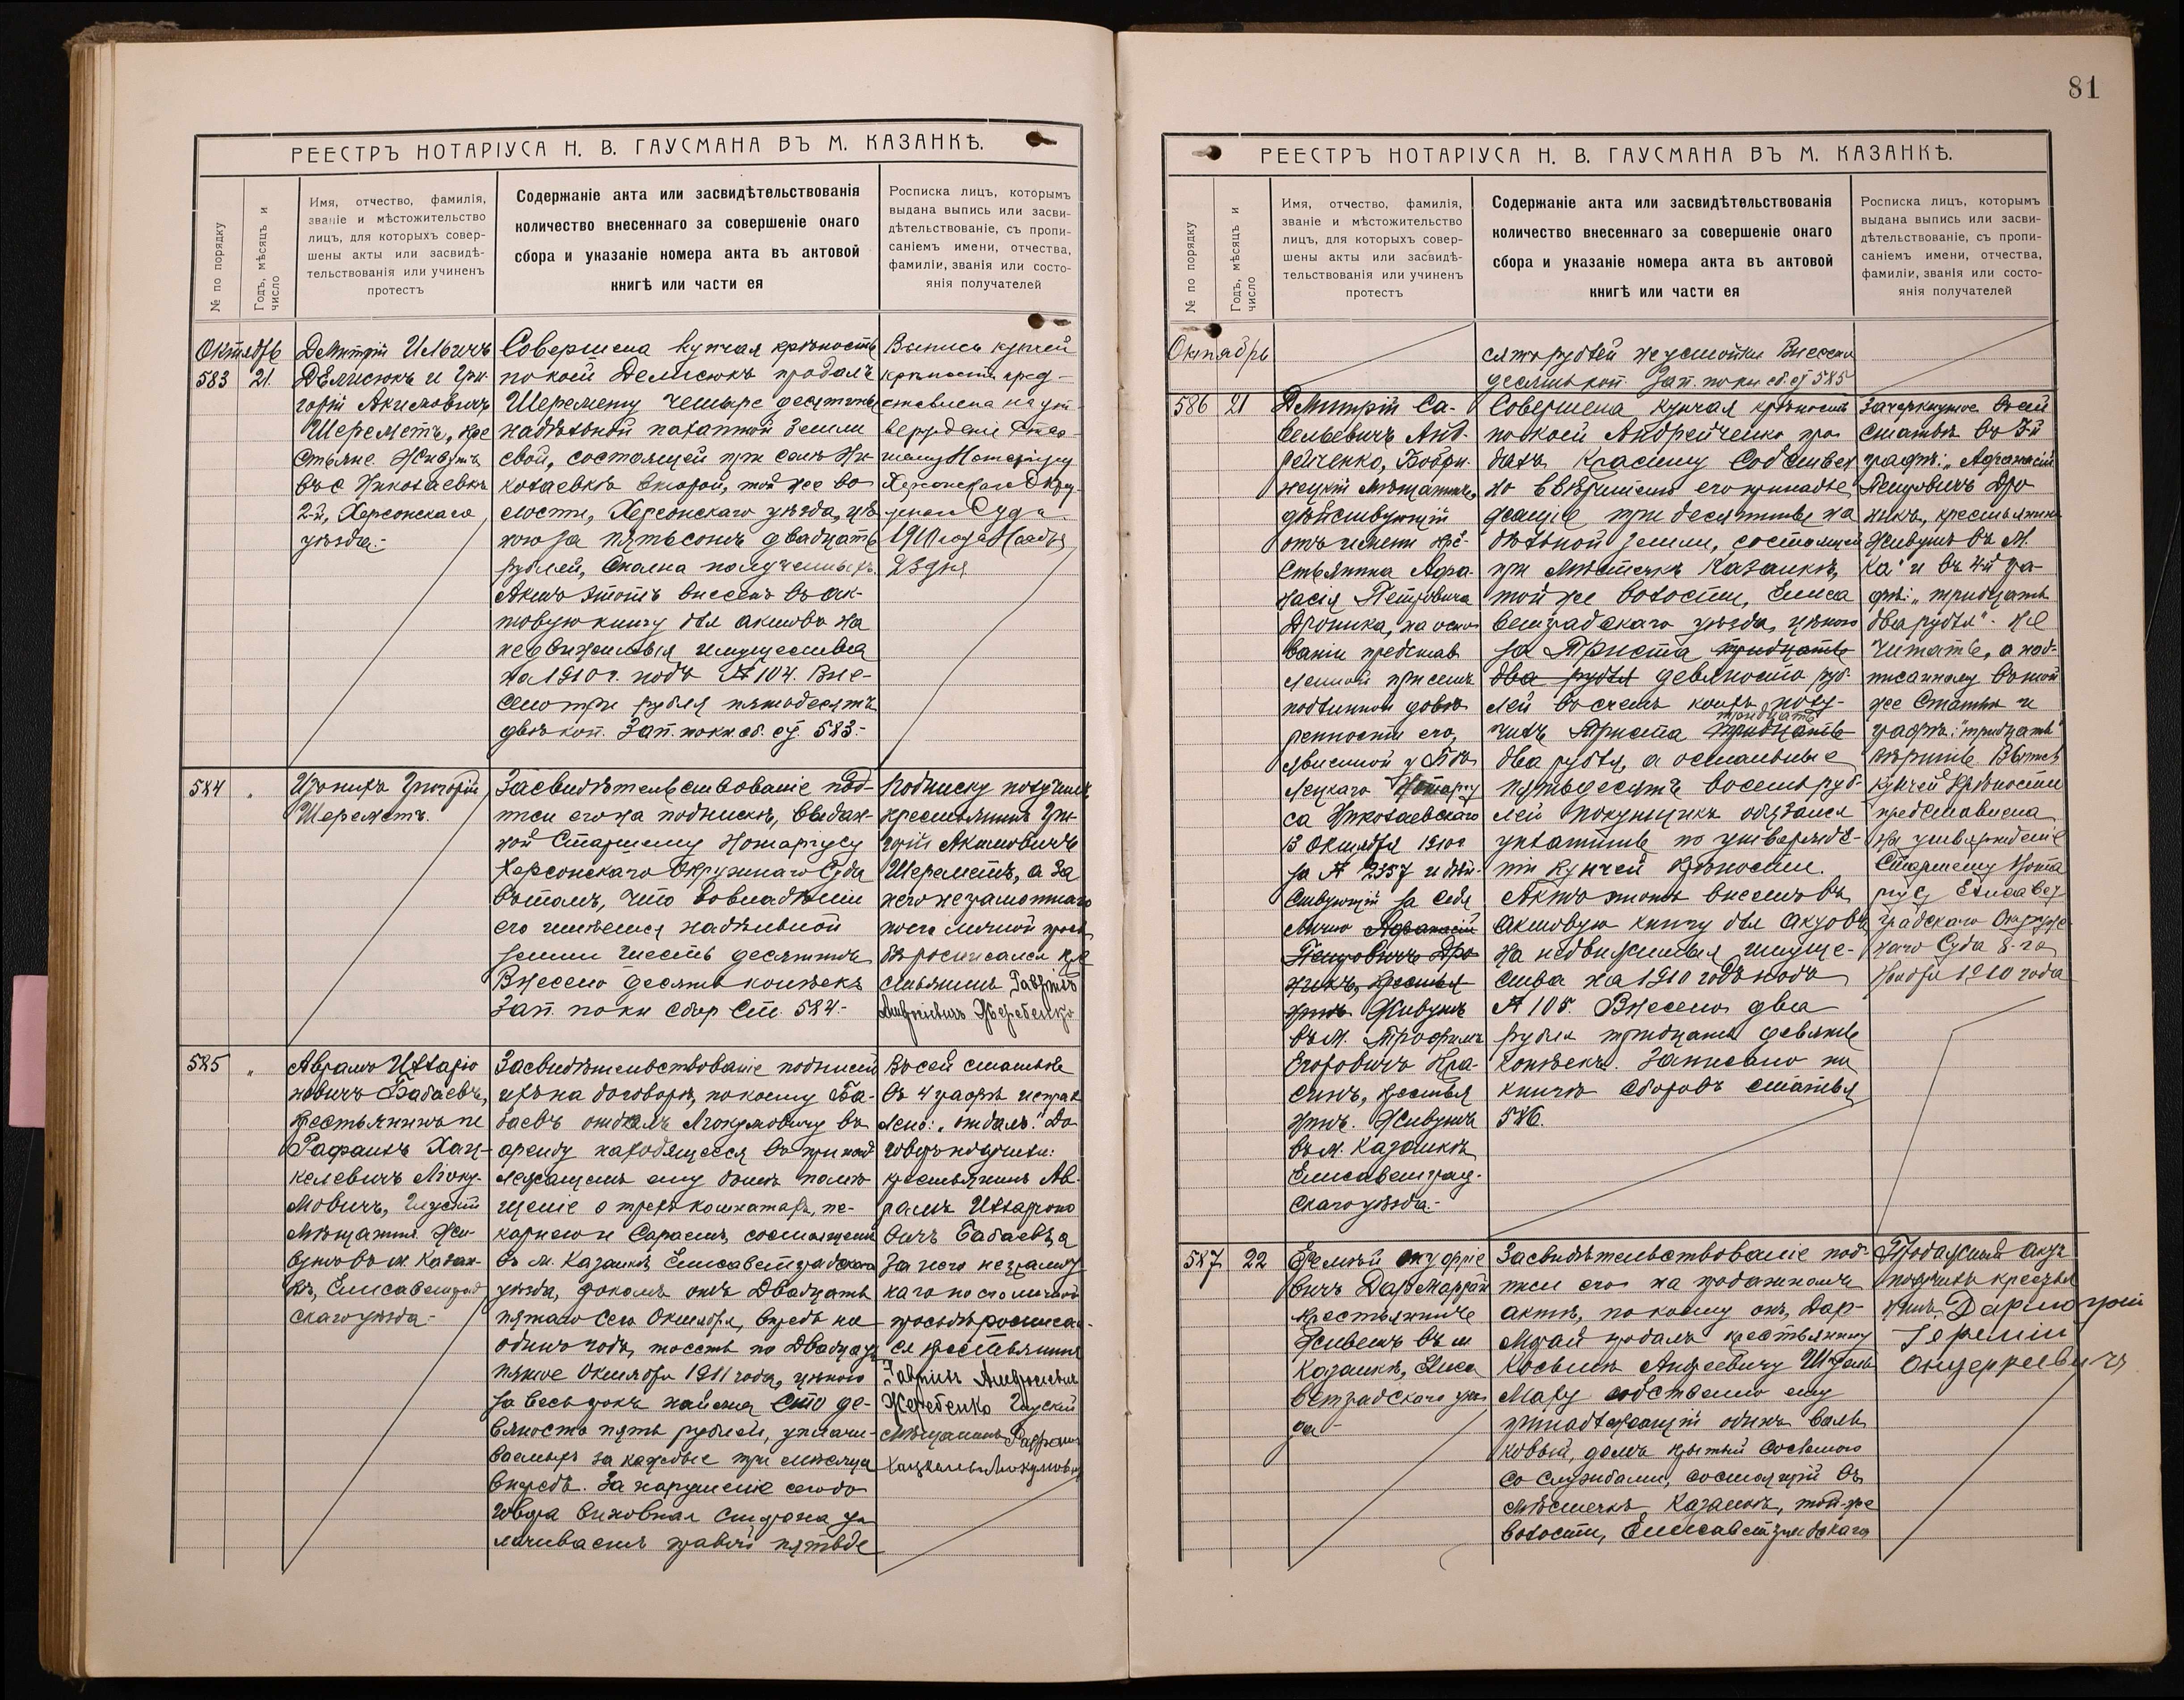 РЕЕСТРЪ НОТАРІУСА Н. В. ГАУСМАНА ВЪ М. КАЗАНКѢ.
№ по порядку
Годъ, мѣсяцъ и число
Имя, отчество, фамилія,
званіе и мѣстожительство
лицъ, для которыхъ совер-
шены акты или засвидѣ-
тельствованія или учиненъ
протестъ
Содержаніе акта или засвидѣтельствованія
количество внесеннаго за совершеніе онаго
сбора и указаніе номера акта въ актовой
книгѣ или части ея
Росписка лицъ, которымъ
выдана выпись или засви-
дѣтельствованіе, съ пропи-
саніемъ имени, отчества,
фамиліи, званія или состо-
янія получателей
Октябрь
583 21.
Дмитрій Ильичъ
Делисюкъ и Гри-
горій Акимовичъ
Шереметъ, кре
стьяне. Живутъ
въ с Николаевкѣ
2-й, Херсонскаго
уѣзда.-
Совершена купчая крѣпость
по коей Делисюкъ продалъ
Шеремету четыре десятины
надѣльной пахатной земли
свой, состоящей при селѣ Ни-
колаевкѣ второй, той же во
лости, Херсонскаго уѣзда, цѣ
ною за пятьсотъ двадцать
рублей, сполна полученныхъ.
Актъ этотъ внесенъ въ ак-
товую книгу для актовъ на
недвижимыя имущества
на 1910 г. подъ № 104. Вне-
сено три рубля пятьдесятъ
двѣ коп. Зап. по кн сб. ст 583.-
Выпись купчей
крѣпости пред-
ставлена на ут
вержденіе Стар-
шему Нотаріусу
Херсонскаго Окру-
жнаго Суда
1910 года Ноября
23 дня
584 "
Изъ нихъ Григорій
Шереметъ.
Засвидѣтельствованіе под-
писи его на подпискѣ, выдан-
ной Старшему Нотаріусу
Херсонскаго Окружнаго Суда
въ томъ, что во владѣніи
его имѣется надѣльной
земли шесть десятинъ
Внесено десять копѣекъ
Зап. по кн сбор ст. 584.-
Подписку получилъ
крестьянинъ Гри-
горій Акимовичъ
Шереметъ, а за
него неграмотнаго
по его личной прось
бѣ росписался кре
стьянинъ Гавріилъ
Амвросіевичъ Жеребенко
585 "
Аврамъ Илларіо
новичъ Бабаевъ,
крестьянинъ и
Рафаилъ Хац-
келевичъ Моку-
мовичъ, Глускій
мѣщанинъ Жи-
вутъ въ м. Казан-
кѣ, Елисаветград
скаго уѣзда-
Засвидѣтельствованіе подписей
ихъ на договорѣ, по коему Ба-
баевъ отдалъ Мокумовичу въ
аренду находящееся въ принад
лежащемъ ему домѣ помѣ
щеніе о трехъ комнатахъ, пе-
карнею и Сараемъ, состоящемъ
въ м. Казанкѣ Елисаветградскаго
уѣзда, срокомъ отъ Двадцать
пятаго сего Октября, впредь на
одинъ годъ, тоесть по Двадцать
пятое Октября 1911 года, цѣною
за весь срокъ найма сто де-
вяносто пять рублей, уплачи-
ваемыхъ за каждые три мѣсяца
впередъ. За нарушеніе сего до
говора виновная сторона уп
лачиваетъ правой пятьде
Въ сей статьѣ
въ 4 графѣ исправ
лено: „отдалъ". До
говоръ получили:
крестьянинъ Ав-
рамъ Илларіоно
вичъ Бабаевъ, а
за него неграмот
наго по его личной
просьбѣ росписал-
ся крестьянинъ
Гавріилъ Амвросіевичъ
Жеребенко Глускій
мѣщанинъ Рафаилъ
Хацкелевъ Мокумовичъ
81
РЕЕСТРЪ НОТАРІУСА Н. В. ГАУСМАНА ВЪ М. КАЗАНКѢ.
№ по порядку
Годъ, мѣсяцъ и число
Имя, отчество, фамилія,
званіе и мѣстожительство
лицъ, для которыхъ совер-
шены акты или засвидѣ-
тельствованія или учиненъ
протестъ
Содержаніе акта или засвидѣтельствованія
количество внесеннаго за совершеніе онаго
сбора и указаніе номера акта въ актовой
книгѣ или части ея
Росписка лицъ, которымъ
выдана выпись или засви-
дѣтельствованіе, съ пропи-
саніемъ имени, отчества,
фамиліи, званія или состо-
янія получателей
Октябрь
сятъ рублей неустойки Внесено
десять коп. Зап. по кн сб. ст 585
586 21
Дмитрій Са-
вельевичъ Анд-
рейченко, Бобри-
нецкій мѣщанинъ,
дѣйствующій
отъ имени кре-
стьянина Афа-
насія Петровича
Дроника, на осно
ваніи представ
ленной при семъ
подлинной довѣ
ренности его,
явленной у Бѣ
лецкаго Нотаріу
са Николаевскаго
13 Октября 1910 г
за № 2357 и дѣй
ствующій за себя
лично Афанасій
Петровичъ Дро
никъ, крестья
нинъ Живутъ
въ м. Трофимъ
Егоровичъ Кра-
синъ, крестья
нинъ. Живутъ
въ м. Казанкѣ
Елисаветград-
скаго уѣзда.-
Совершена купчая крѣпость
по коей Андрейченко про
далъ Красину собствен
но ввѣрителю его принадле
жащіе три десятины на
дѣльной земли, состоящей
при мѣстечкѣ Казанкѣ,
той же волости, Елиса
ветградскаго уѣзда, цѣною
за Триста тридцать
два рубля девяносто руб-
лей въ счетъ коихъ полу-
чилъ Триста тридцать
тридцать
два рубля, а остальные
пятьдесятъ восемь руб-
лей покупщикъ обязался
уплатить по утвержде-
ніи купчей крѣпости.
Актъ этотъ внесенъ въ
актовую книгу для актовъ
на недвижимыя имуще-
ства на 1910 годъ подъ
№ 105. Внесено два
рубля тридцать девять
копѣекъ. Записано по
книгѣ сборовъ статья
586.
Зачеркнутое въ сей
статьѣ въ 3-й
графѣ: „Афанасій
Петровичъ Дро
никъ, крестьянинъ
Живутъ въ м.
Ка" и въ 4-й гра-
фѣ: „тридцать
два рубля". не
читать, а над-
писанному въ той
же статьѣ и
графѣ: „тридцать"
вѣрить. Выпись
купчей крѣпости
представлена
на утвержденіе
Старшему Нота
ріусу Елисавет
градскаго Окруж
наго Суда 8-го
Ноября 1910 года
587 22
Еремѣй Онуфріе
вичъ Дармограй
крестьянинъ
Живетъ въ м
Казанкѣ, Елиса
ветградскаго уѣз
да-
Засвидѣтельствованіе под-
писи его на продажномъ
актѣ, по коему онъ, Дар-
мограй продалъ крестьянину
собственно ему
принадлежащій одинъ валь
ковый, домъ крытый соломою
со службами, состоящій въ
мѣстечкѣ Казанкѣ, той-же
волости, Елисаветградскаго
Продажный актъ
получилъ крестья
нинъ Дармограй